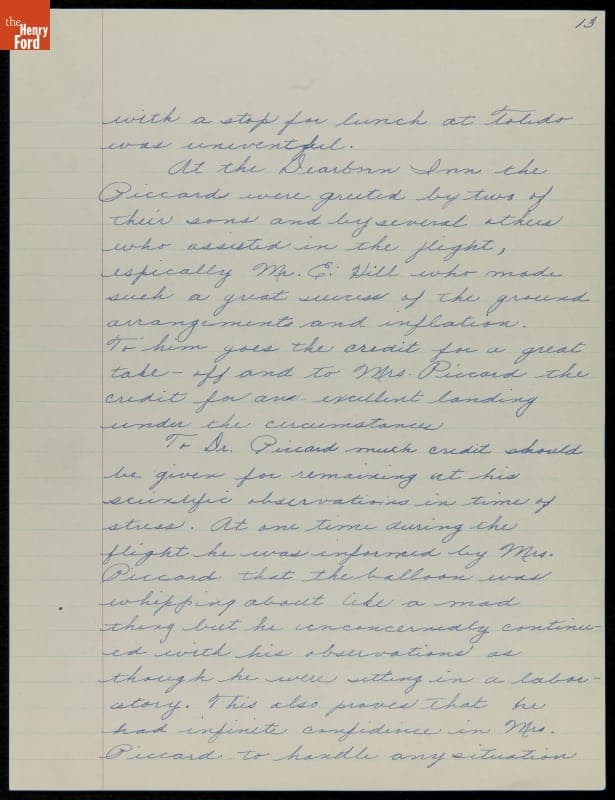 the
Henry
Ford
13
with a stop for lunch at Toledo
was uneventful.
At the Dearborn Inn the
Piccards were greeted by two of
their sons and by several others
who assisted in the flight,
espically Mr. E. Hill who made
such a great sucess of the ground
arrangements and inflation.
To him goes the credit for a great
take-off and to Mrs. Piccard the
credit for an excellent landing
under the circumstances
To Dr. Piccard much credit should
be given for remaining at his
scientific observations in time of
stress. At one time during the
flight he was informed by Mrs.
Piccard that the balloon was
whipping about like a mad
thing but he unconcernedly continu-
ed with his observations as
though he were sitting in a labor-
atory. This also proves that he
had infinite confidence in Mrs.
Piccard to handle any situation